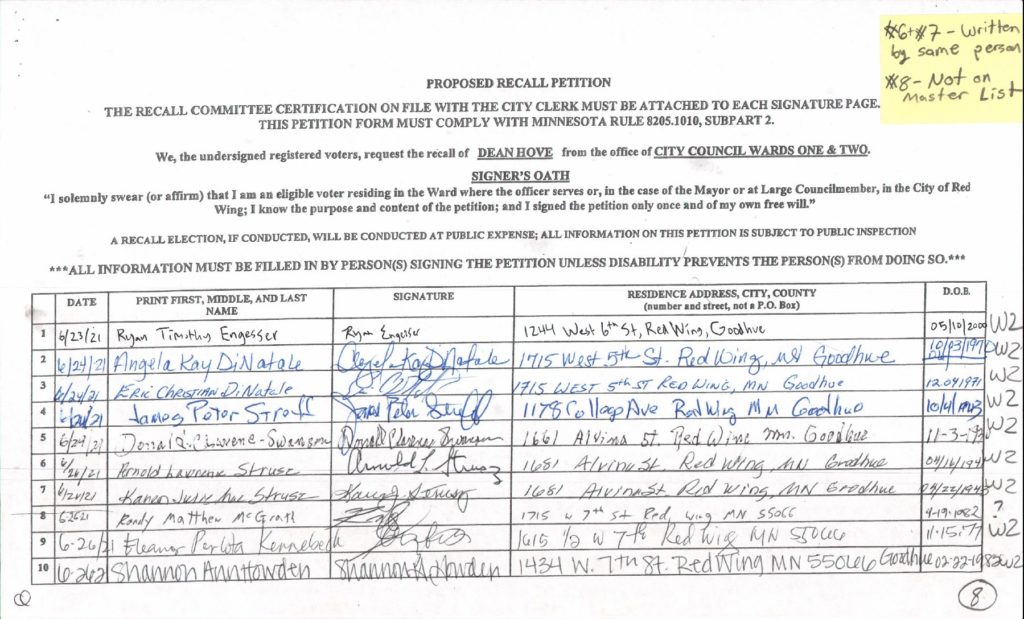 #6+#7 - Written
by same person
#8 - Not on
Master List
PROPOSED RECALL PETITION
THE RECALL COMMITTEE CERTIFICATION ON FILE WITH THE CITY CLERK MUST BE ATTACHED TO EACH SIGNATURE PAGE.
THIS PETITION FORM MUST COMPLY WITH MINNESOTA RULE 8205.1010, SUBPART 2.
We, the undersigned registered voters, request the recall of DEAN HOVE from the office of CITY COUNCIL WARDS ONE & TWO.
SIGNER'S OATH
"I solemnly swear (or affirm) that I am an eligible voter residing in the Ward where the officer serves or, in the case of the Mayor or at Large Councilmember, in the City of Red
Wing; I know the purpose and content of the petition; and I signed the petition only once and of my own free will."
A RECALL ELECTION, IF CONDUCTED, WILL BE CONDUCTED AT PUBLIC EXPENSE; ALL INFORMATION ON THIS PETITION IS SUBJECT TO PUBLIC INSPECTION
***ALL INFORMATION MUST BE FILLED IN BY PERSON(S) SIGNING THE PETITION UNLESS DISABILITY PREVENTS THE PERSON(S) FROM DOING SO.***
DATE PRINT FIRST, MIDDLE, AND LAST NAME SIGNATURE RESIDENCE ADDRESS, CITY, COUNTY (number and street, not a P.O. Box) D.O.B.
1 6/23/21 Ryan Timithy Engesser Ryan Engesser 1244 West 6th St, Red Wing, Goodhue 05/10/2000 W2
2 6/24/21 Angela Kay DiNatale Angela Kay DiNatale 1715 West 5th St. Red Wing, MN Goodhue W2
3 6/24/21 ERIC CHRISTIAN DiNatale 1715 WEST 5th ST RED WING, MN Goodhue 12.04.1971 W2
4 James Peter Stroff James Peter 1178 College Ave Red Wing MN Goodhue W2
5 6/24/21 Donald Swanson 1661 Alvina St. Red Wing Mn. Goodhue W2
6 6/24/21 Arnold Lawrence Strusz Arnold L Strusz 1681 Alvina St. Red Wing, MN Goodhue W2
7 6/24/21 Karen Strusz 1681 Alvina St Red Wing, MN Goodhue W2
8 Randy Matthew McGrath 1715 W 7th St Red wing MN 55066 ?
9 6-26/21 Eleanor 1615 1/2 W 7th Red Wig MN 55066 11-15-77 W2
10 6-262 Shannon Ann Howden Shannon A Howden 1434 W. 7th St. Red Wing MN 55066 Goodhue 02-22-1982 W2
8